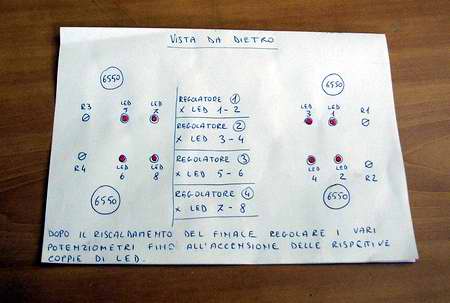 VISTA DA DIETRO
6550
6550
R3
LED
LED
7
REGOLATORE 1
x LED 1-2
LED
3
LED
1
R1
REGOLATORE 2
x LED 3-4
R4
LED
6
LED
8
REGOLATORE 3
x LED 5-6
LED
4
LED
2
R2
6550
REGOLATORE 4
x LED 7-8
6550
DOPO IL RISCALDAMENTO DEL FINALE REGOLARE I VARI
POTENZIOMETRI FINO ALL'ACCENSIONE DELLE RISPETTIVE
COPPIE DI LED.